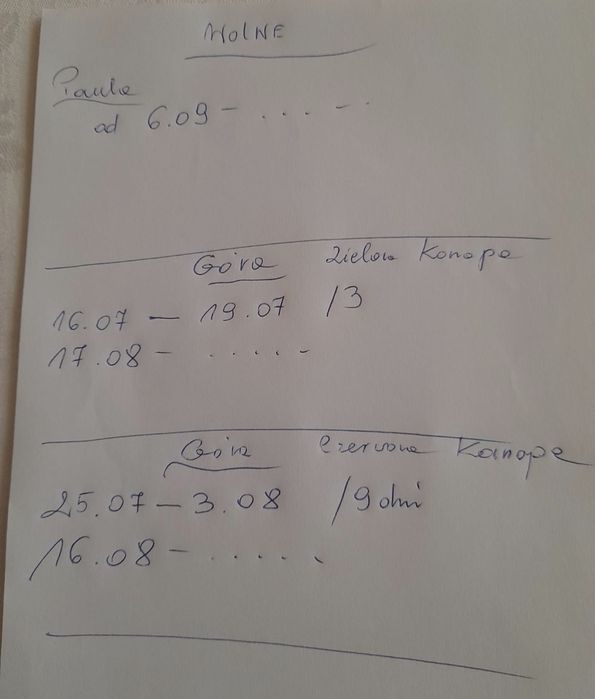 WOLNE
Paula
od 6.09 - . . . - .
Góra zielona Kanapa
16.07 — 19.07 /3
17.08 - . . . . -
Góra czerwona Kanapa
25.07 — 3.08 /9 dni
16.08 - . . . . .